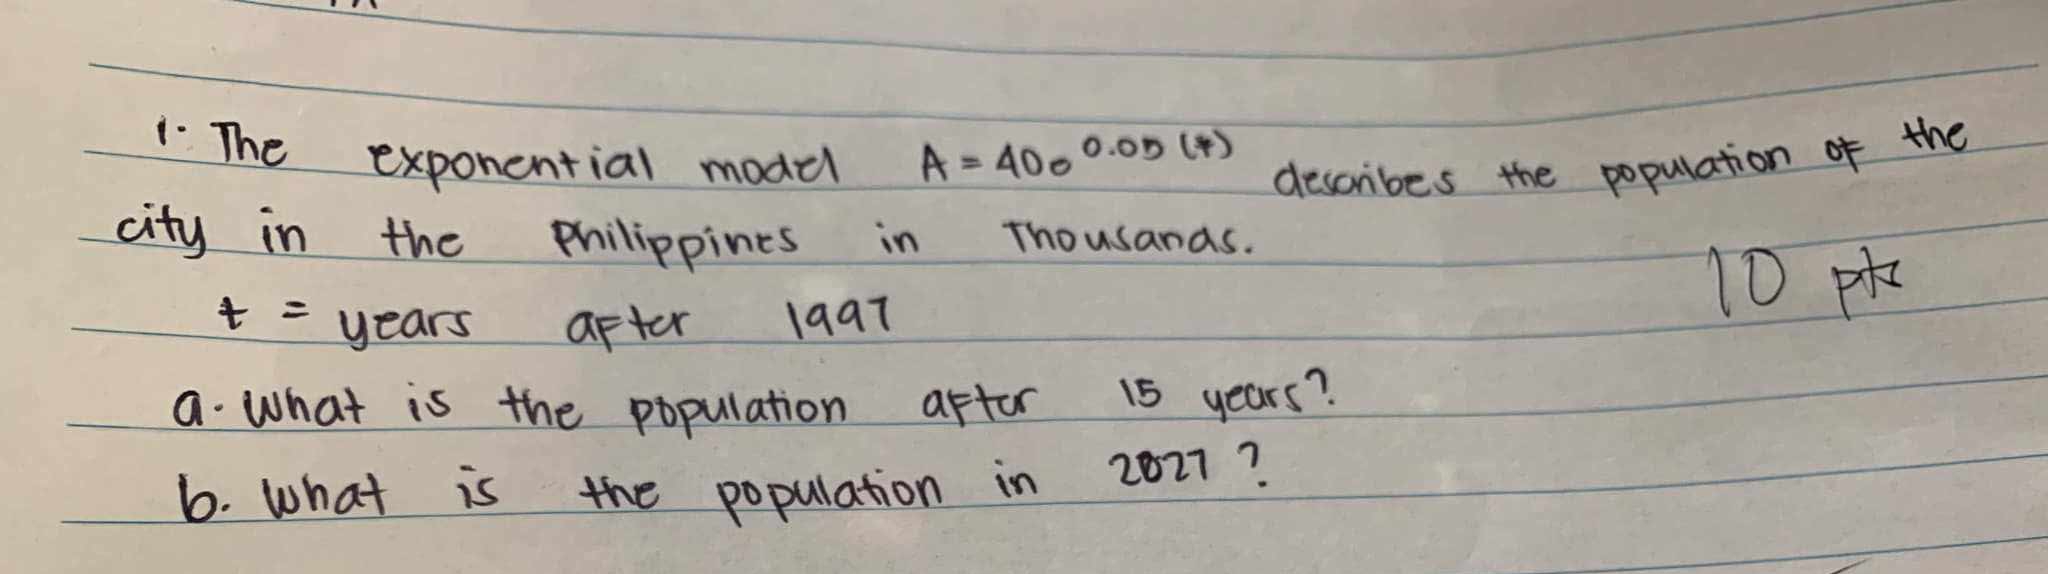 1. The exponential model A = 40e^0.05 (t) describes the population of the
city in the Philippines in Thousands.
10 pts
t = years after 1997
a. What is the population after 15 years?
b. What is the population in 2027?